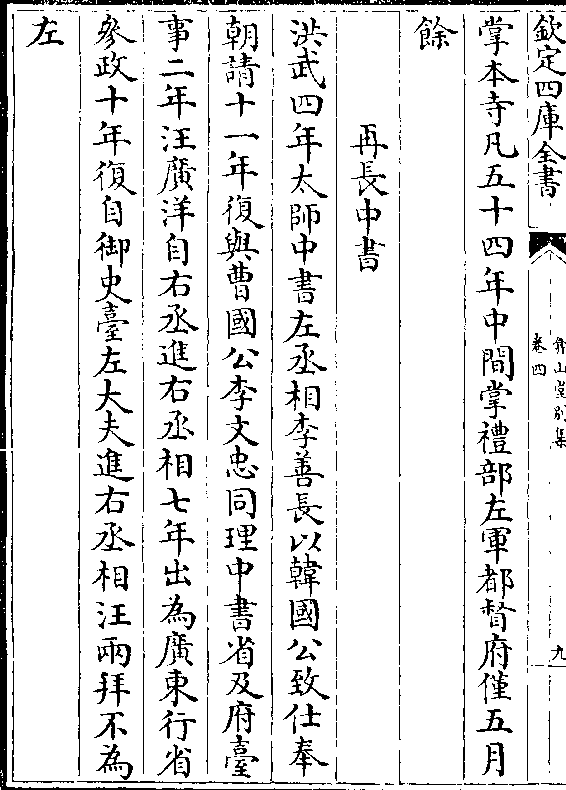 欽定四庫全書
弇山堂别集
卷四
九
掌本寺凡五十四年中間掌禮部左軍都督府僅五月
餘
再長中書
洪武四年太師中書左丞相李善長以韓國公致仕奉
朝請十一年復與曹國公李文忠同理中書省及府臺
事二年汪廣洋自右丞進右丞相七年出為廣東行省
參政十年復自御史臺左大夫進右丞相汪兩拜不為
左